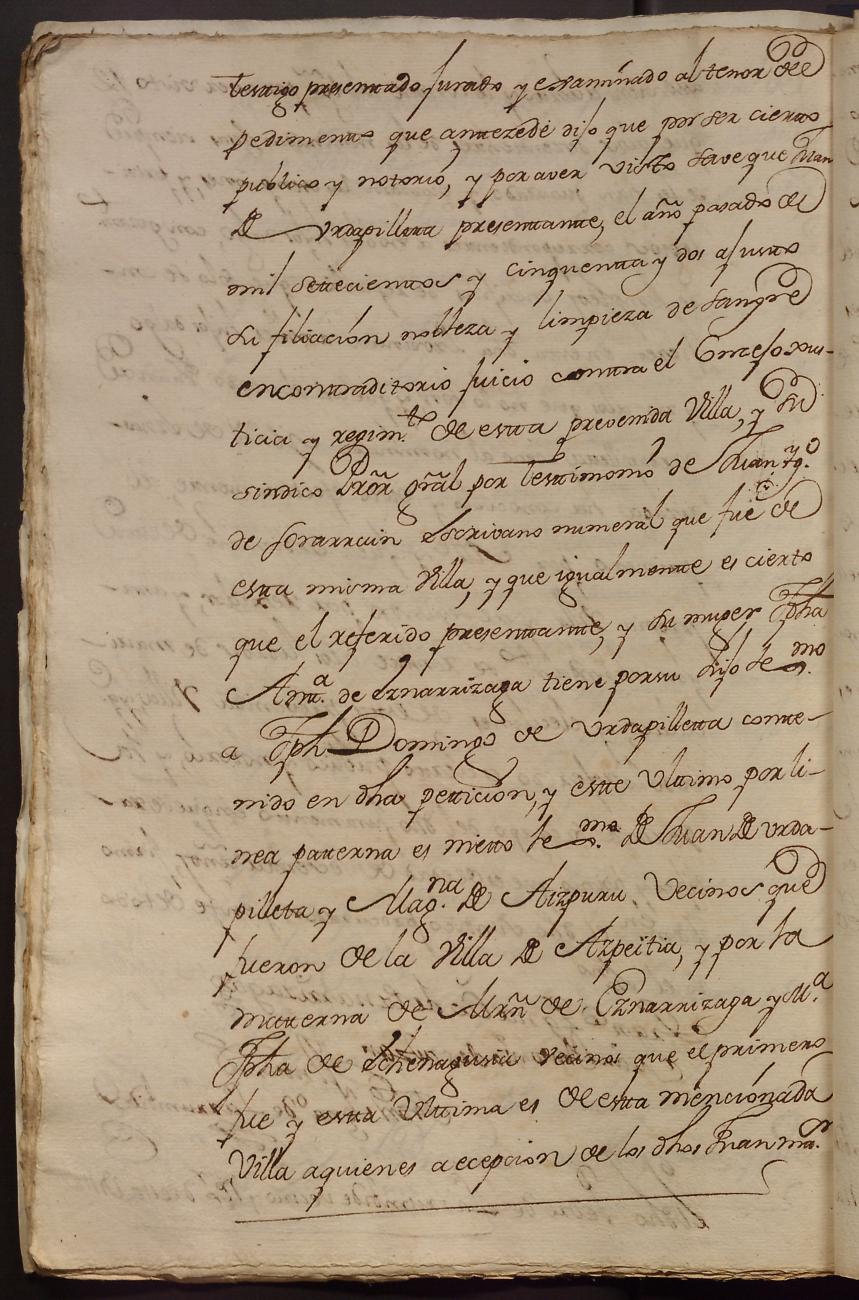 testigo presentado jurado y examinado al tenor del
pedimento que antezede dijo que por ser cierto
publico y notorio, y por aver visto save que Juan
de Vrdapilleta presentante, el año pasado de
mil settecientos y cinquenta y dos ajusto
su filiación nobleza y limpieza de sangre
en contraditorio juicio contra el Concejo xus-
ticia y regim.to de esta prevenida Villa, y su
sindico Pror gral por Testimonio de Juan
de Sorarrain Escrivano numeral que fue de
esta misma Villa, y que igualmente es cierto
que el referido presentante, y su muger Jpha
Ant.a de Eznarrizaga tiene por su hijo lexmo.
a Jph Domingo de Vrdapilletta conte-
nido en dha petticion, y este Vltimo por li-
nea paterna es nieto lexmo. de Juan de Vrda-
pilleta y Mag.na de Aizpuru Vecinos que
fueron de la Villa de Azpeitia, y por la
materna de Mrñ de Eznarrizaga y M.a
Jpha de Echenagusia vecinos que el primero
fue y esta Vltima es de esta mencionada
Villa a quienes a ecepcion de los dhos Juan ma.or